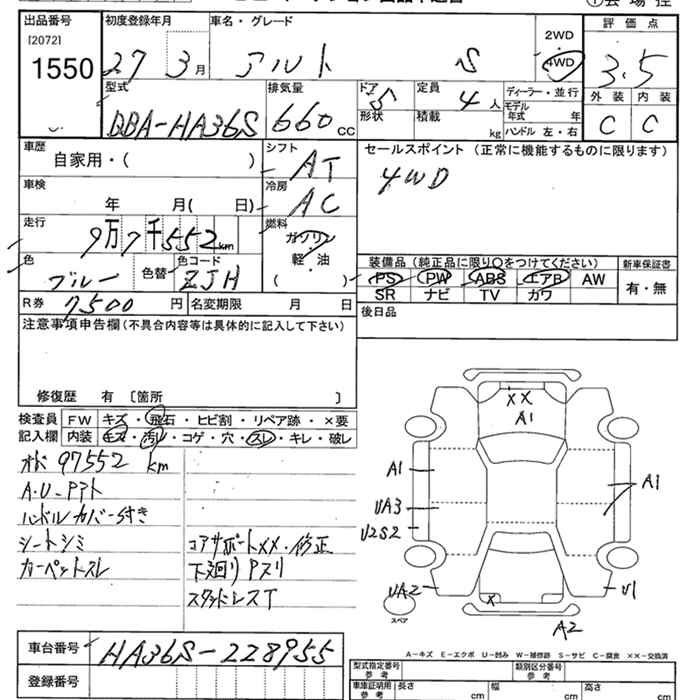 出品番号 初度登録年月 車名・グレード 評価点
[2072]
1550 27 3月 アルト S 2WD 4WD 3.5
外装 内装
C C
型式 排気量 ドア 定員 ディーラー・並行
BBA-HA36S 660cc 5 4人 モデル年式 年
形状 積載 kg ハンドル 左・右
車歴 シフト セールスポイント(正常に機能するものに限ります)
自家用・( ) AT 4WD
車検 冷房
年 月( 日) AC
走行 燃料
9万7千552km ガソリン
軽・油
( )
色 色替 色コード 装備品(純正品に限り〇をつけてください) 新車保証書
ブルー ZJH PS PW ABS エアB AW 有・無
SR ナビ TV カワ
R券 7500円 名変期限 月 日 後日品
注意事項申告欄(不具合内容等は具体的に記入して下さい)
修復歴 有 〔箇所 〕
検査員 FW キズ・飛石・ヒビ割・リペア跡・×要
記入欄 内装 キズ・汚レ・コゲ・穴・スレ・キレ・破レ
97552 km
ハンドルカバー付き
シートシミ コアサポートXX・修正
カーペットスレ 下廻りPスリ
スタッドレスT
XX
A1
A1 A1
UA3
U2S2
UA2 U1
X
スペア
A2
A-キズ E-エクボ U-凹み W-補修跡 S-サビ C-腐食 ××-交換済
車台番号 HA36S-228955
登録番号
型式指定番号 参考 類別区分番号 参考
車庫証明用 参考 長さ cm 幅 cm 高さ cm